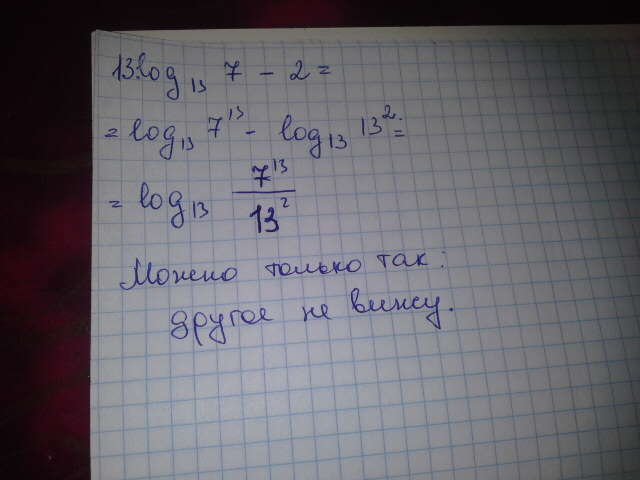 13·log₁₃ 7 − 2 =
= log₁₃ 7¹³ − log₁₃ 13² =
= log₁₃ 7¹³/13²
Можно только так:
другое не вижу.